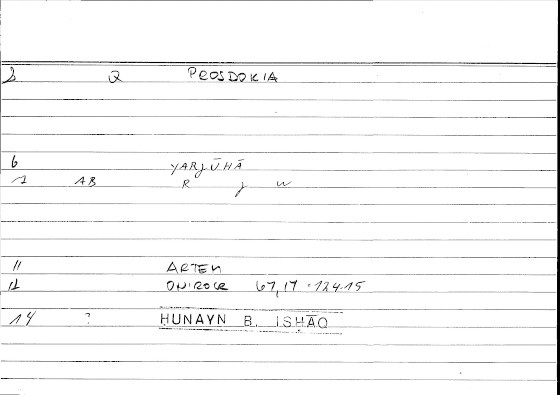 2 Q PROSDOKIA
6 YARJŪHĀ
7 AB R J W
11 ARTEM
12 ONIROCR 67,17 · 124.15
14 ? ḤUNAYN B. ISḤĀQ